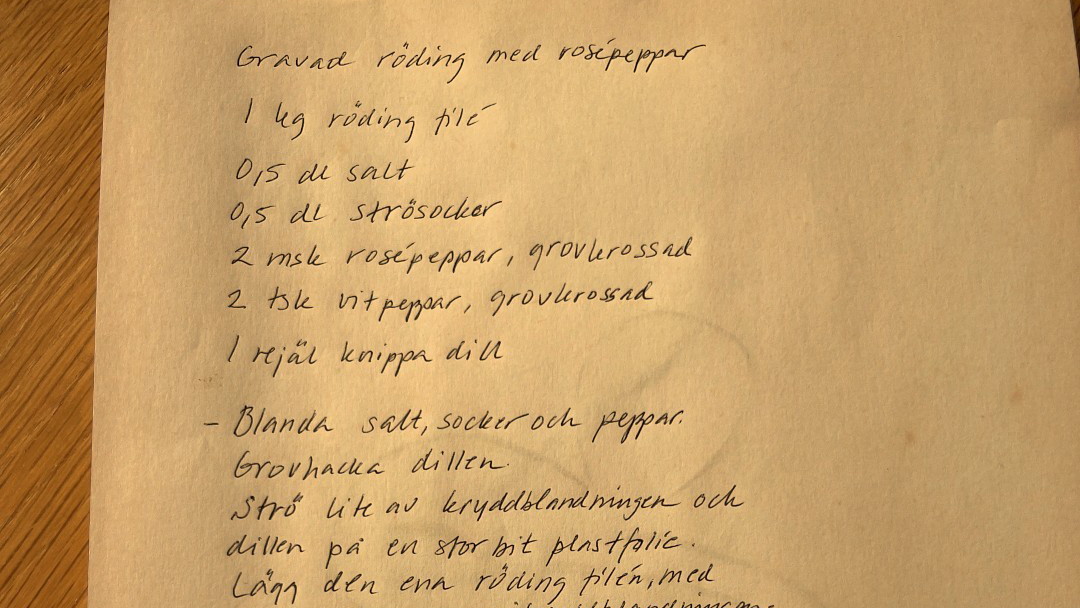 Gravad röding med rosépeppar
1 kg röding filé
0,5 dl salt
0,5 dl strösocker
2 msk rosépeppar, grovkrossad
2 tsk vitpeppar, grovkrossad
1 rejäl knippa dill
- Blanda salt, socker och peppar.
Grovhacka dillen.
Strö lite av kryddblandningen och
dillen på en stor bit plastfolie.
Lägg den ena röding filén, med